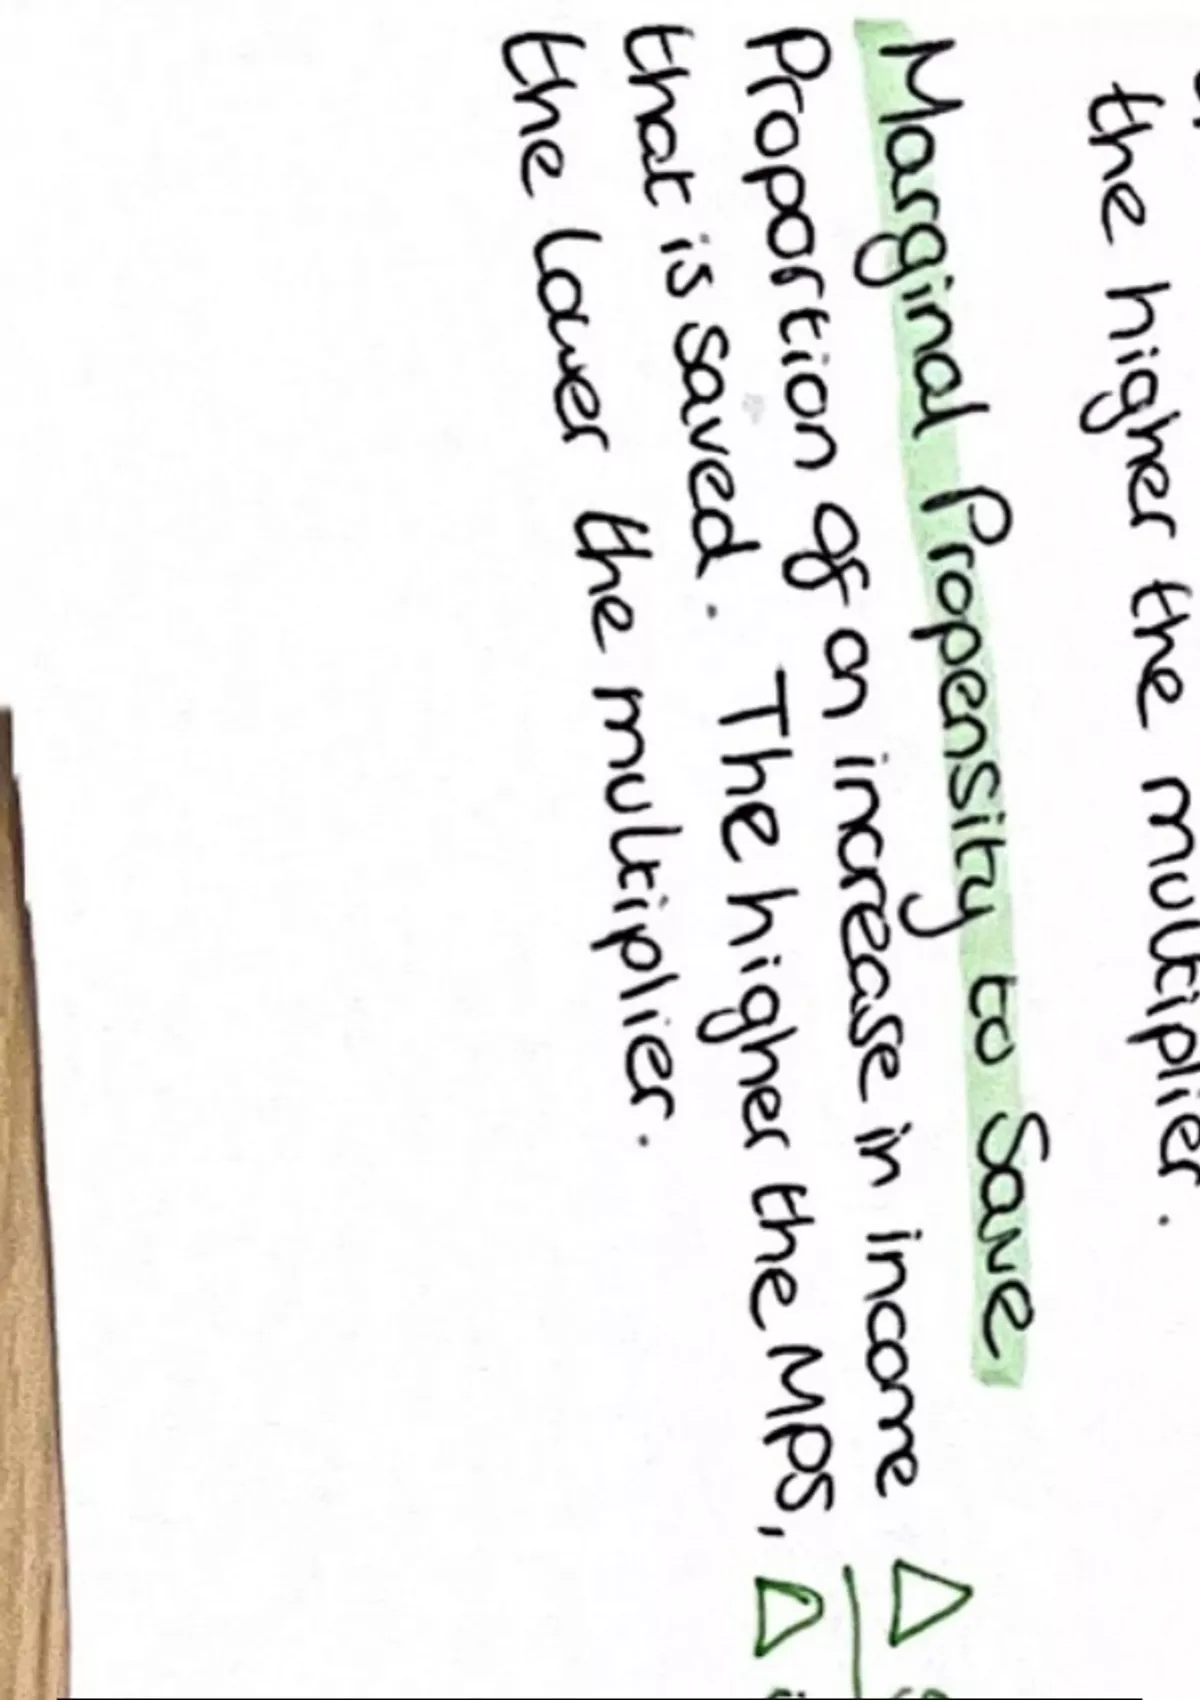 the higher the multiplier.
Marginal Propensity to Save
Proportion of an increase in income
that is saved. The higher the MPS,
the lower the multiplier.
Δ
Δ